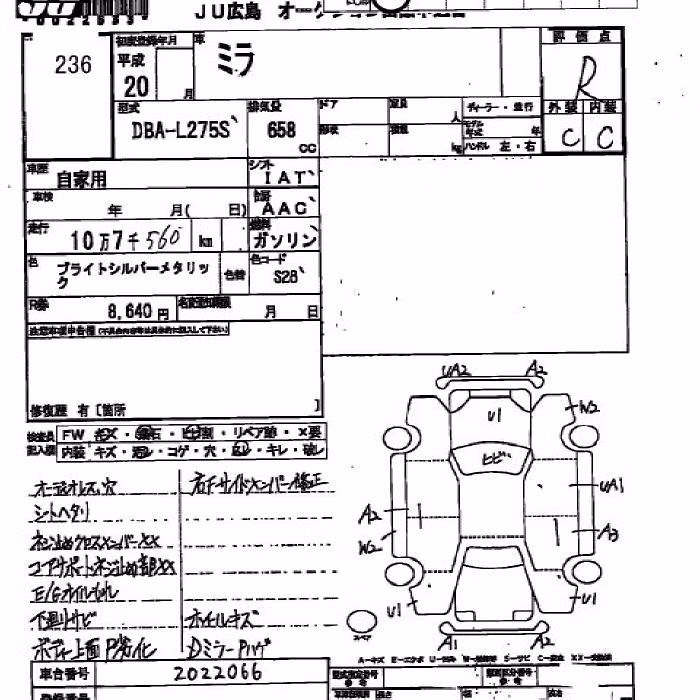 JU広島
236
初度登録年月
平成
20
月
車
ミラ
評価点
R
型式
DBA-L275S
排気量
658
cc
ドア
定員
人
ディーラー・並行
形状
積載
kg
年
ハンドル 左・右
外装 内装
C C
車歴
自家用
シフト
IAT
車検
年 月( 日)
AAC
走行
10万7千560 km
燃料
ガソリン
色
ブライトシルバーメタリック
色替
色コード
S28
R券
8,640円
名変通知期限
月 日
注意事項申告欄
修復歴 有 [箇所 ]
検査員
記入欄
FW キズ・飛石・ヒビ割・リペア跡・X要
内装 キズ・汚レ・コゲ・穴・凹レ・キレ・破レ
オーディオレス,穴
右Fサイドメンバー修正
シートヘタリ
ネジ止めクロスメンバーXX
コアサポートネジ止め部XX
E/Gオイルもれ
下廻りサビ
ホイルキズ
ボディー上面P劣化
DミラーPハゲ
UA2 A2
U1
W2
ヒビ
UA1
A2
A3
W2
U1
U1
スペア
A1 A2
車台番号
2022066
型式指定番号
類別区分番号